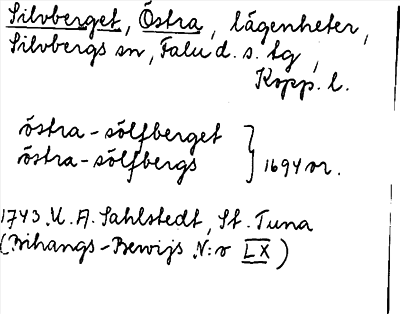 Silvberget, Östra, lägenheter,
Silvbergs sn, Falu d. s. tg,
Kopp. l.
östra-sölfberget
östra-sölfbergs } 1694 or.
1743 U. A. Sahlstedt, St. Tuna
(Bihangs-Bewijs N:o LX)